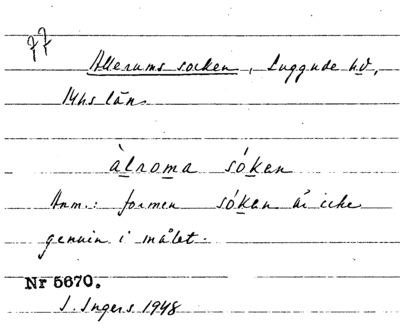 77
Allerums socken, Luggude hd,
Mhs län.
àlroma sóken
Anm.: formen sóken är icke
genuin i målet.
Nr 5670.
I. Ingers 1948